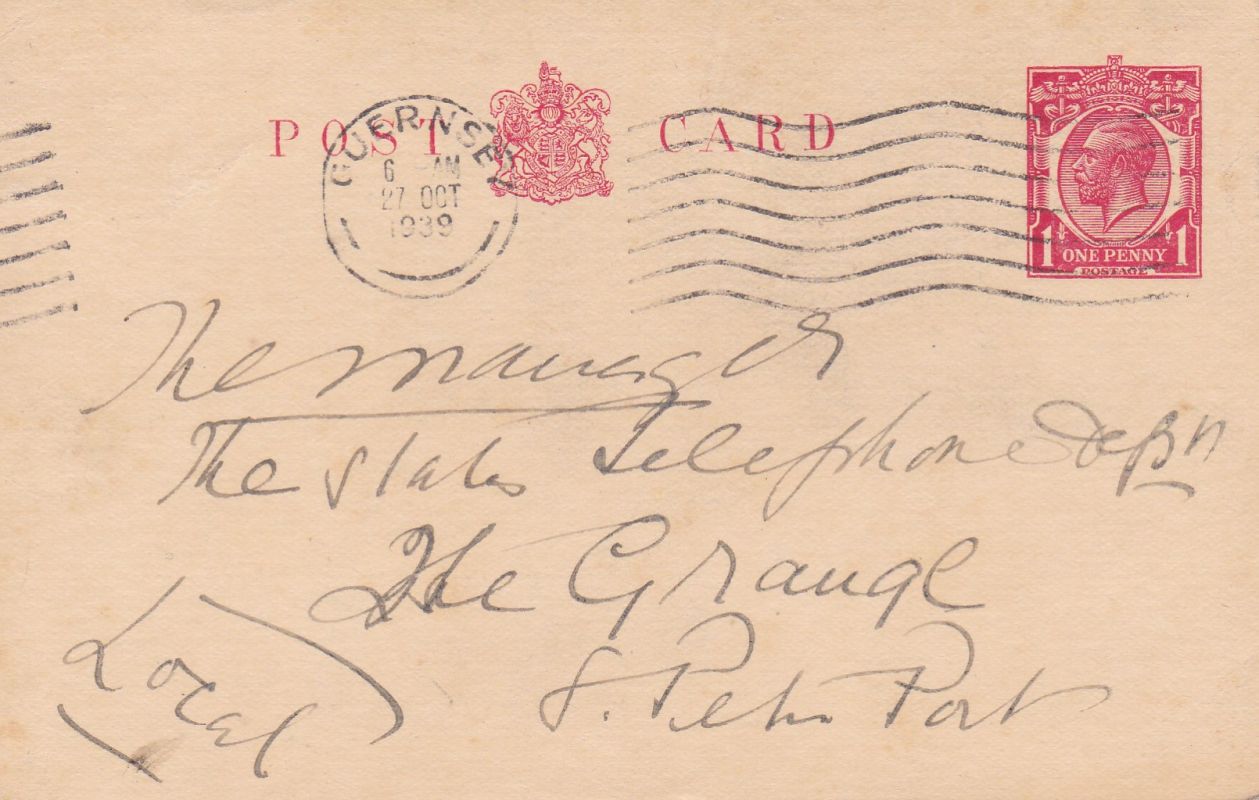 POST CARD
GUERNSEY
6 AM
27 OCT
1939
1 1
ONE PENNY
POSTAGE
The Manager
The States Telephone Deptn
The Grange
S. Peter Port
(Local)